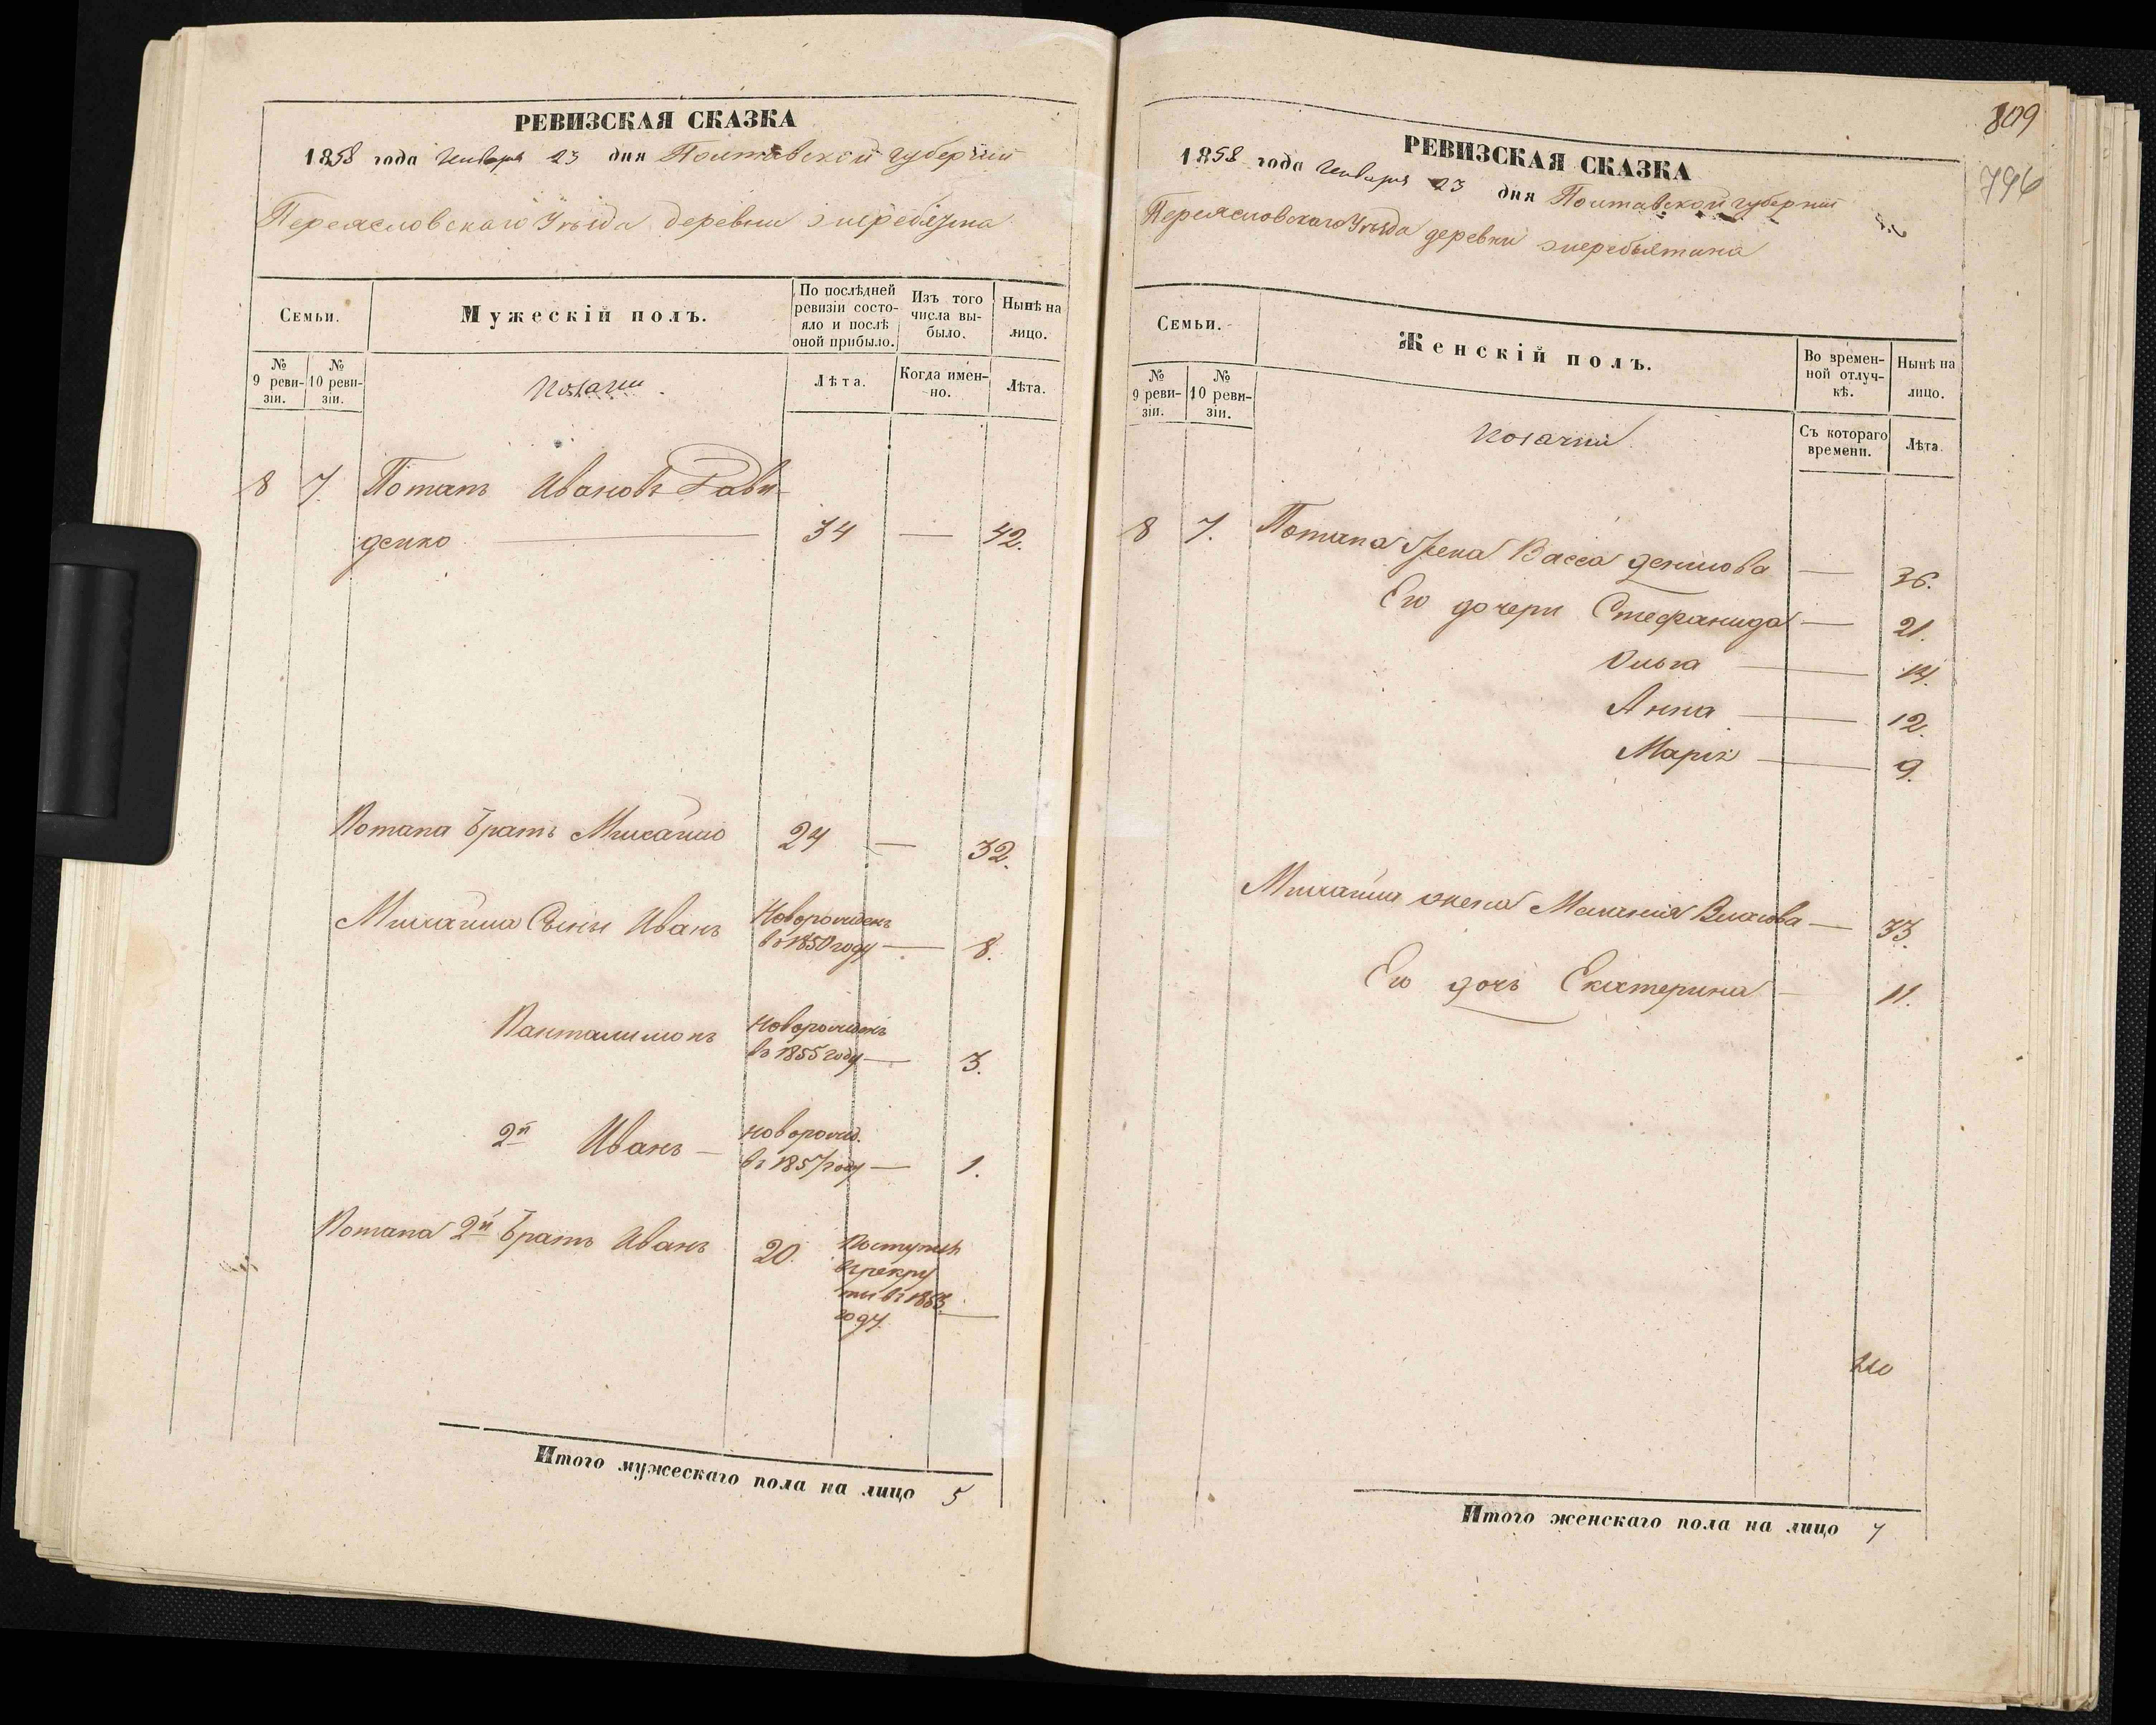 РЕВИЗСКАЯ СКАЗКА
1858 года Генваря 23 дня Полтавской губернии
Переясловскаго Уѣзда деревни
Семьи.
Мужескій полъ.
По послѣдней ревизіи состо-
яло и послѣ оной прибыло.
Изъ того числа вы-
было.
Нынѣ на лицо.
№ 9 реви-
зіи.
№ 10 реви-
зіи.
Козачій
Лѣта.
Когда имен-
но.
Лѣта.
8 7. Потапъ Ивановъ Дави-
денко 34 — 42.
Потапа братъ Михайло 24 — 32.
Михайла Сыны Иванъ Новорожденъ
въ 1850 году — 8.
Панталимонъ новорожденъ
въ 1855 году — 3.
2й Иванъ — новорожд.
въ 1857 году — 1.
Потапа 2й братъ Иванъ 20. Поступилъ
въ рекру
ты въ 1853
году. —
Итого мужескаго пола на лицо 5
809
796
РЕВИЗСКАЯ СКАЗКА
1858 года Генваря 23 дня Полтавской губернии
Переясловскаго Уѣзда деревни
Семьи.
Женскій полъ.
Во времен-
ной отлуч-
кѣ.
Нынѣ на лицо.
№ 9 реви-
зіи.
№ 10 реви-
зіи.
Козачій
Съ котораго времени.
Лѣта.
8 7. Потапа жена Васса — 36.
Его дочери Стефанида — 21.
Ольга — 14.
Анна — 12.
Марія — 9.
Михайла жена Меланія Власова — 33.
Его дочь Екатерина — 11.
Итого женскаго пола на лицо 7